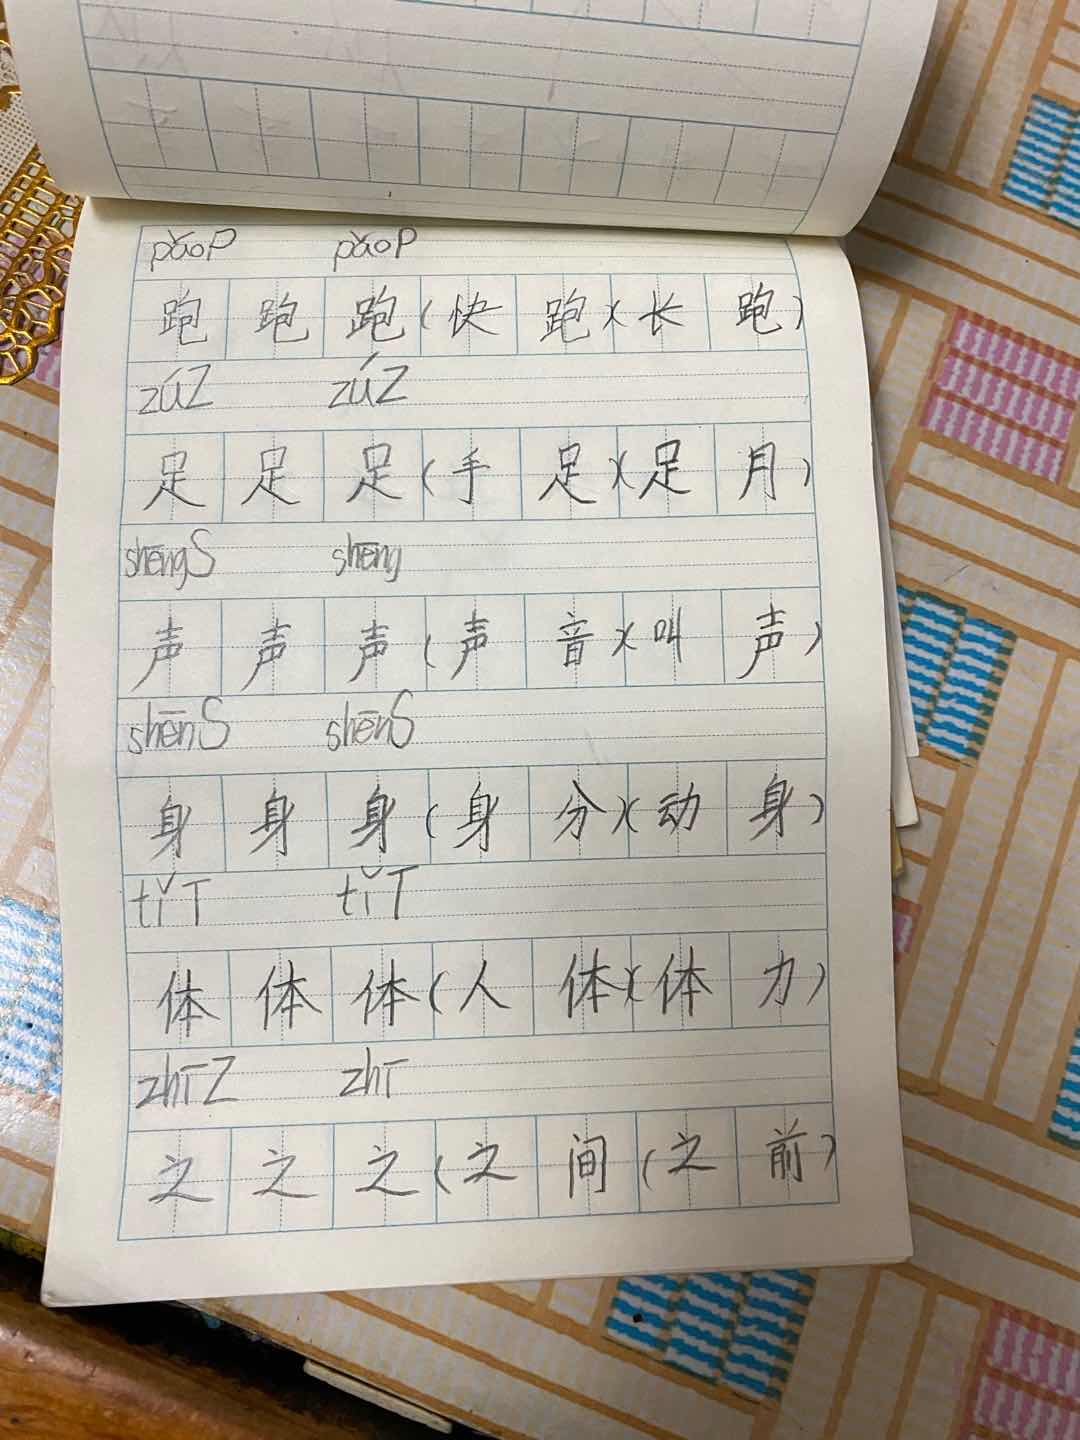 pǎoP pǎoP
跑跑跑(快跑)(长跑)
zúZ zúZ
足足足(手足)(足月)
shēngS shēng
声声声(声音)(叫声)
shēnS shēnS
身身身(身分)(动身)
tǐT tǐT
体体体(人体)(体力)
zhīZ zhī
之之之(之间(之前)